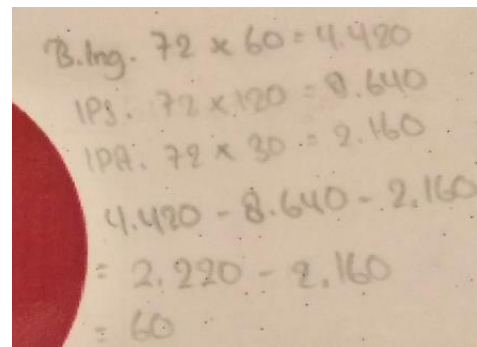 B.Ing. 72 x 60 = 4.420
IPS. 72 x 120 = 8.640
IPA. 72 x 30 = 2.160
4.420 - 8.640 - 2.160
= 2.220 - 2.160
= 60